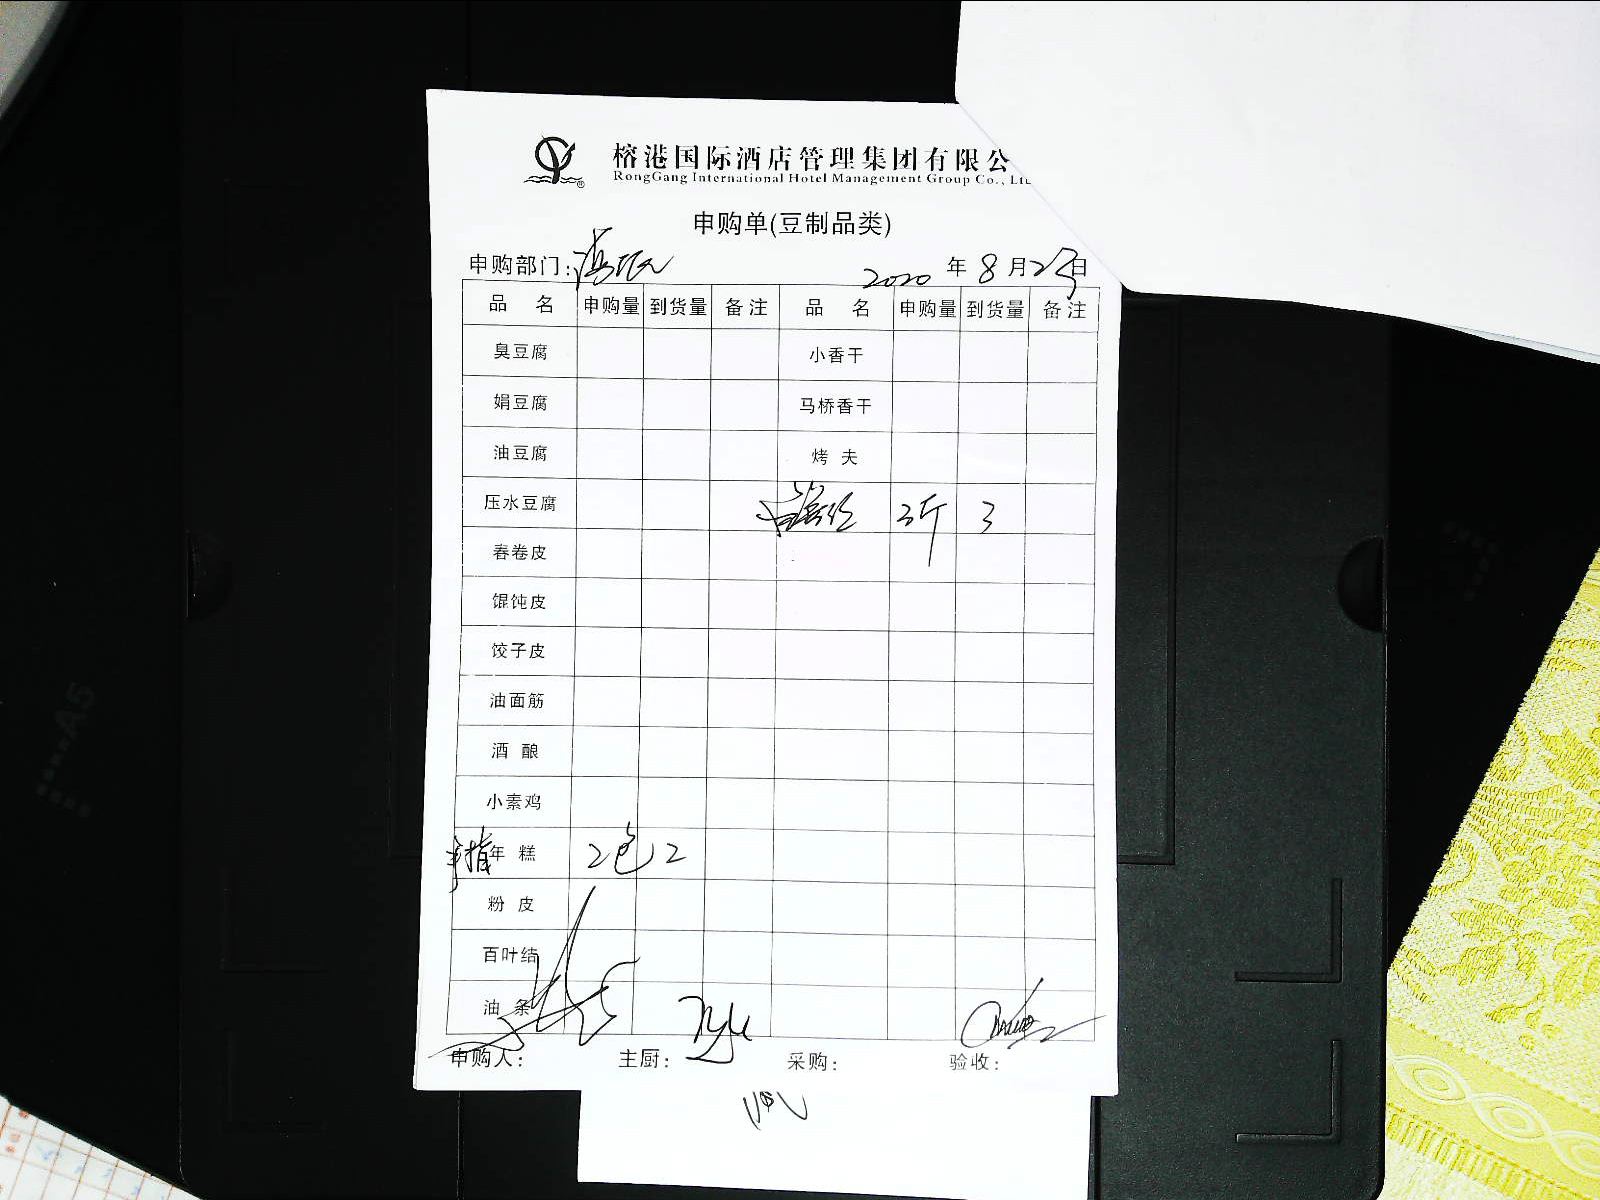 榕港国际酒店管理集团有限公
RongGang International Hotel Management Group Co., Lt
申购单(豆制品类)
申购部门: 2020 年 8 月 日
品 名 申购量 到货量 备注 品 名 申购量 到货量 备注
臭豆腐 小香干
娟豆腐 马桥香干
油豆腐 烤 夫
压水豆腐 3斤 3
春卷皮
馄饨皮
饺子皮
油面筋
酒 酿
小素鸡
手指年 糕 2包 2
粉 皮
百叶结
油 条
申购人: 主厨: 采购: 验收:
A5